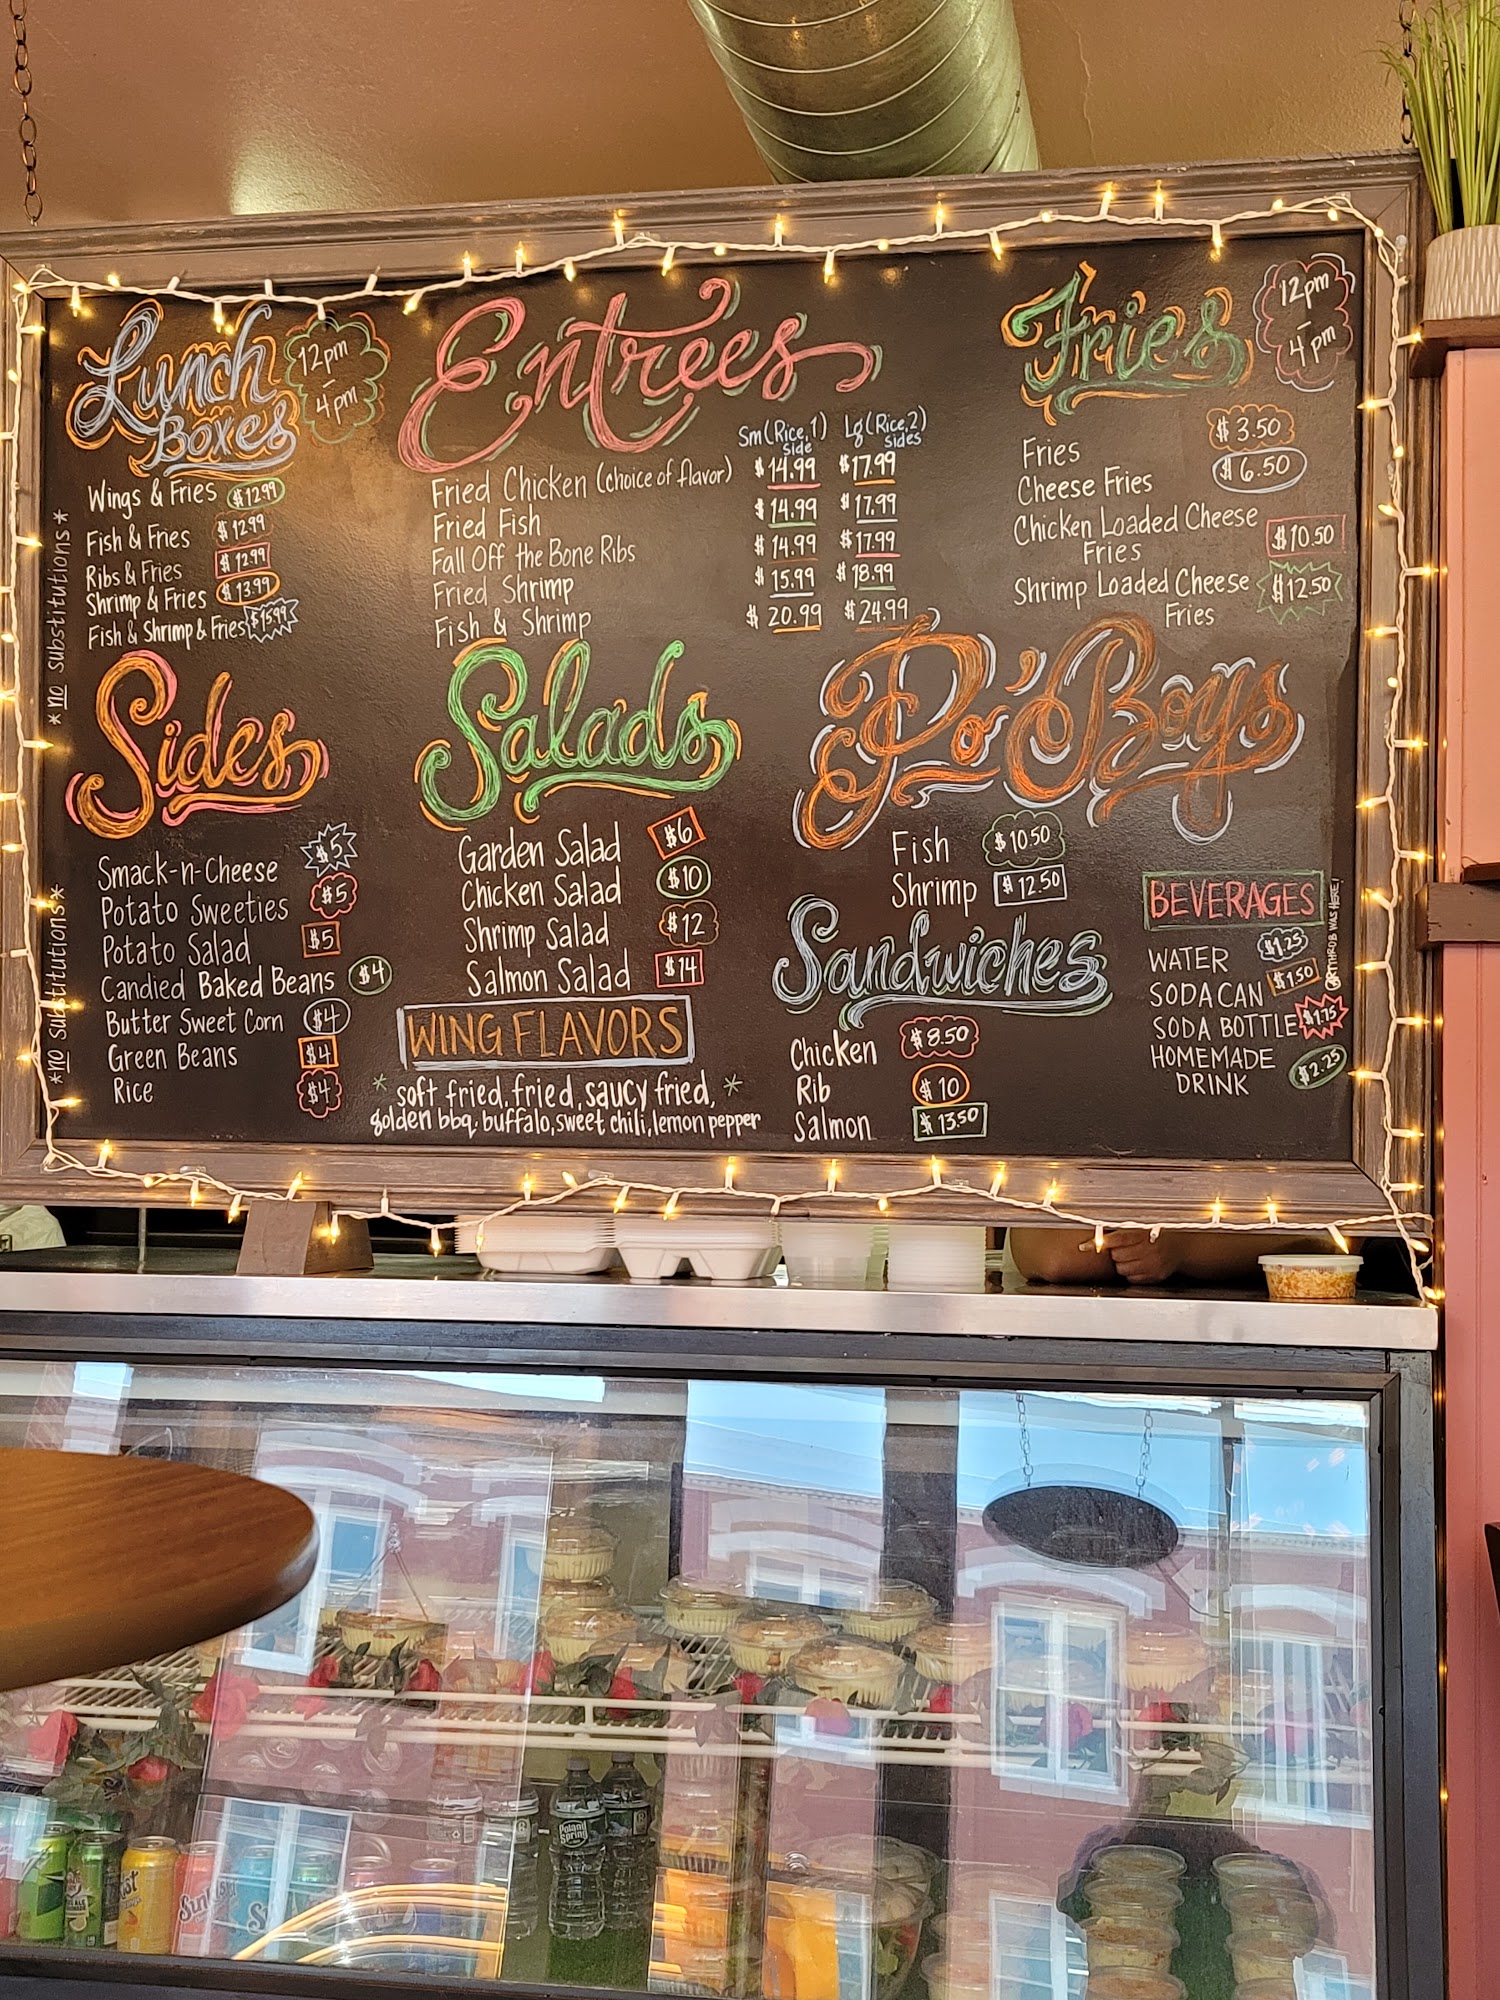 Lunch
Boxes
12pm
-
4pm
Wings & Fries $12.99
Fish & Fries $12.99
Ribs & Fries $12.99
Shrimp & Fries $13.99
Fish & Shrimp & Fries $15.99
*no substitutions*
Entrees
Sm (Rice, 1 side) Lg (Rice, 2 sides)
Fried Chicken (choice of flavor) $14.99 $17.99
Fried Fish $14.99 $17.99
Fall Off the Bone Ribs $14.99 $17.99
Fried Shrimp $15.99 $18.99
Fish & Shrimp $20.99 $24.99
Fries
12pm
-
4pm
Fries $3.50
Cheese Fries $6.50
Chicken Loaded Cheese
Fries $10.50
Shrimp Loaded Cheese
Fries $12.50
Sides
Smack-n-Cheese $5
Potato Sweeties $5
Potato Salad $5
Candied Baked Beans $4
Butter Sweet Corn $4
Green Beans $4
Rice $4
*no substitutions*
Salads
Garden Salad $6
Chicken Salad $10
Shrimp Salad $12
Salmon Salad $14
WING FLAVORS
* soft fried, fried, saucy fried, *
golden bbq, buffalo, sweet chili, lemon pepper
Po'Boys
Fish $10.50
Shrimp $12.50
Sandwiches
Chicken $8.50
Rib $10
Salmon $13.50
BEVERAGES
WATER $1.25
SODA CAN $1.50
SODA BOTTLE $1.75
HOMEMADE
DRINK $2.25
WAS HERE!
Poland
Spring